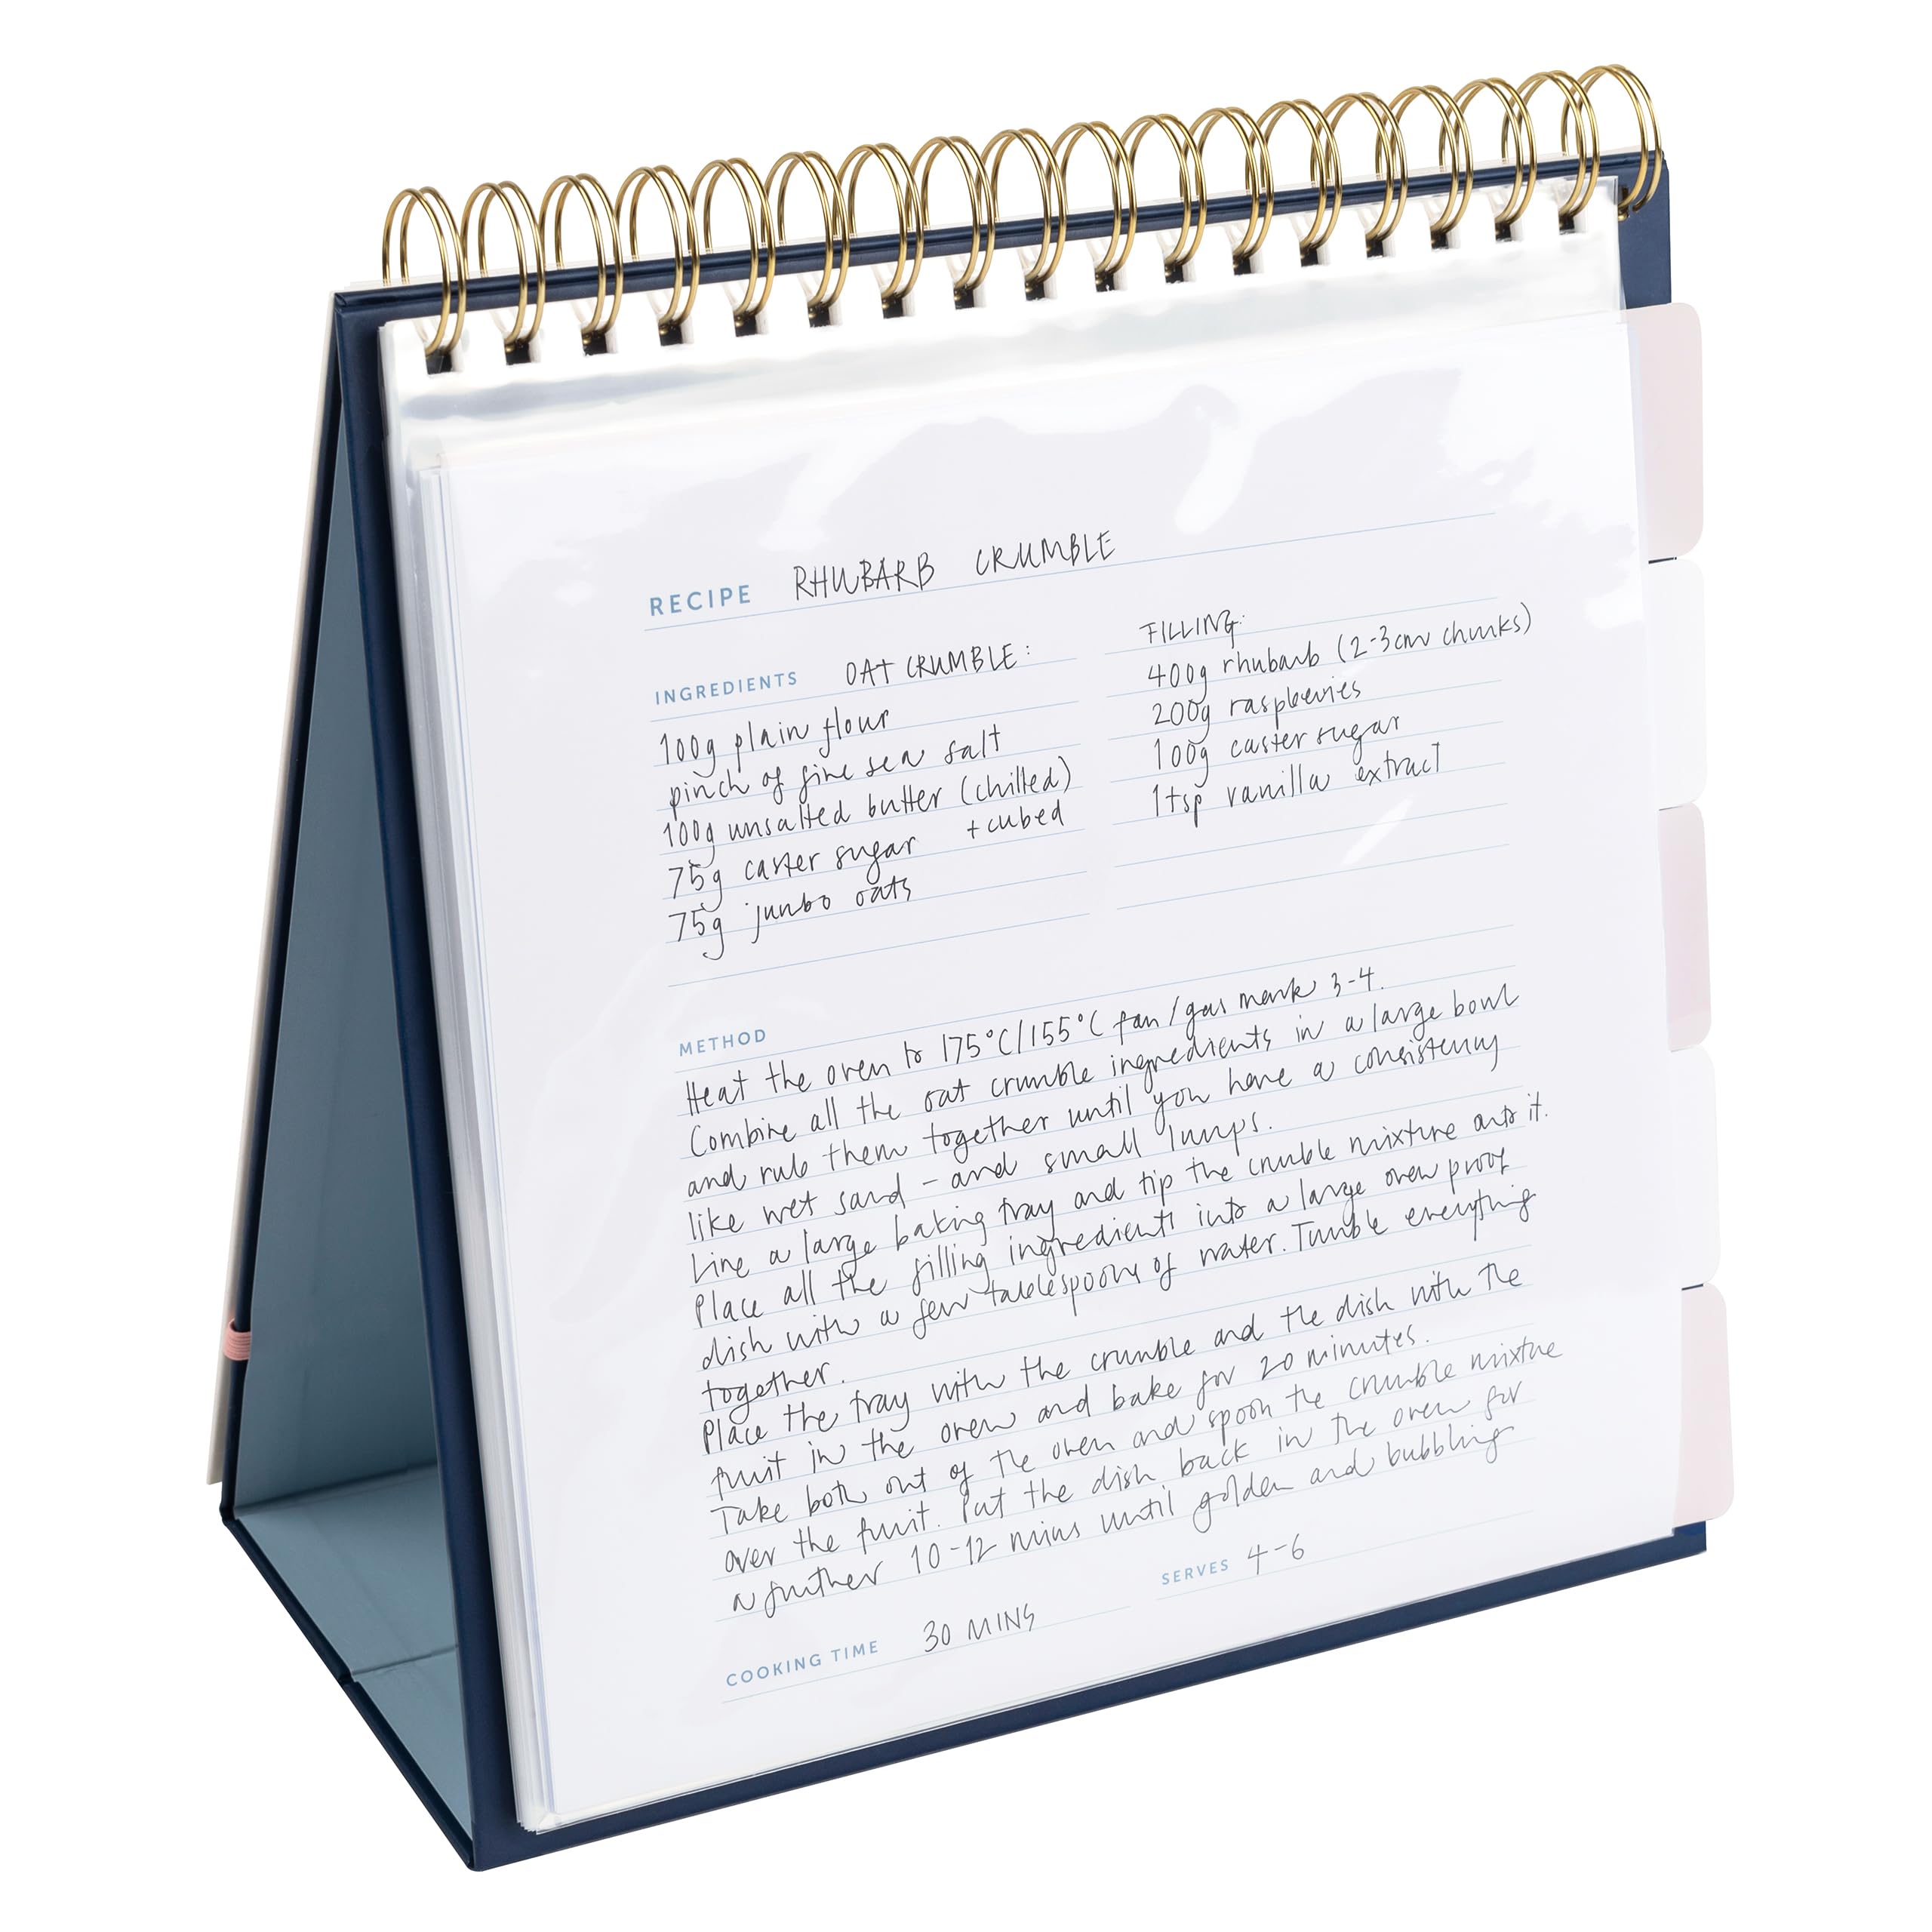 RECIPE RHUBARB CRUMBLE
INGREDIENTS OAT CRUMBLE:
100g plain flour
pinch of fine sea salt
100g unsalted butter (chilled)
+ cubed
75g caster sugar
75g jumbo oats
FILLING:
400g rhubarb (2-3cm chunks)
200g raspberries
100g caster sugar
1tsp vanilla extract
METHOD
Heat the oven to 175°C/155°C fan/gas mark 3-4.
Combine all the oat crumble ingredients in a large bowl
and rub them together until you have a consistency
like wet sand - and small lumps.
Line a large baking tray and tip the crumble mixture onto it.
Place all the filling ingredients into a large oven proof
dish with a few tablespoons of water. Tumble everything
together.
Place the tray with the crumble and the dish with the
fruit in the oven and bake for 20 minutes.
Take both out of the oven and spoon the crumble mixture
over the fruit. Put the dish back in the oven for
a further 10-12 mins until golden and bubbling
COOKING TIME 30 MINS
SERVES 4-6